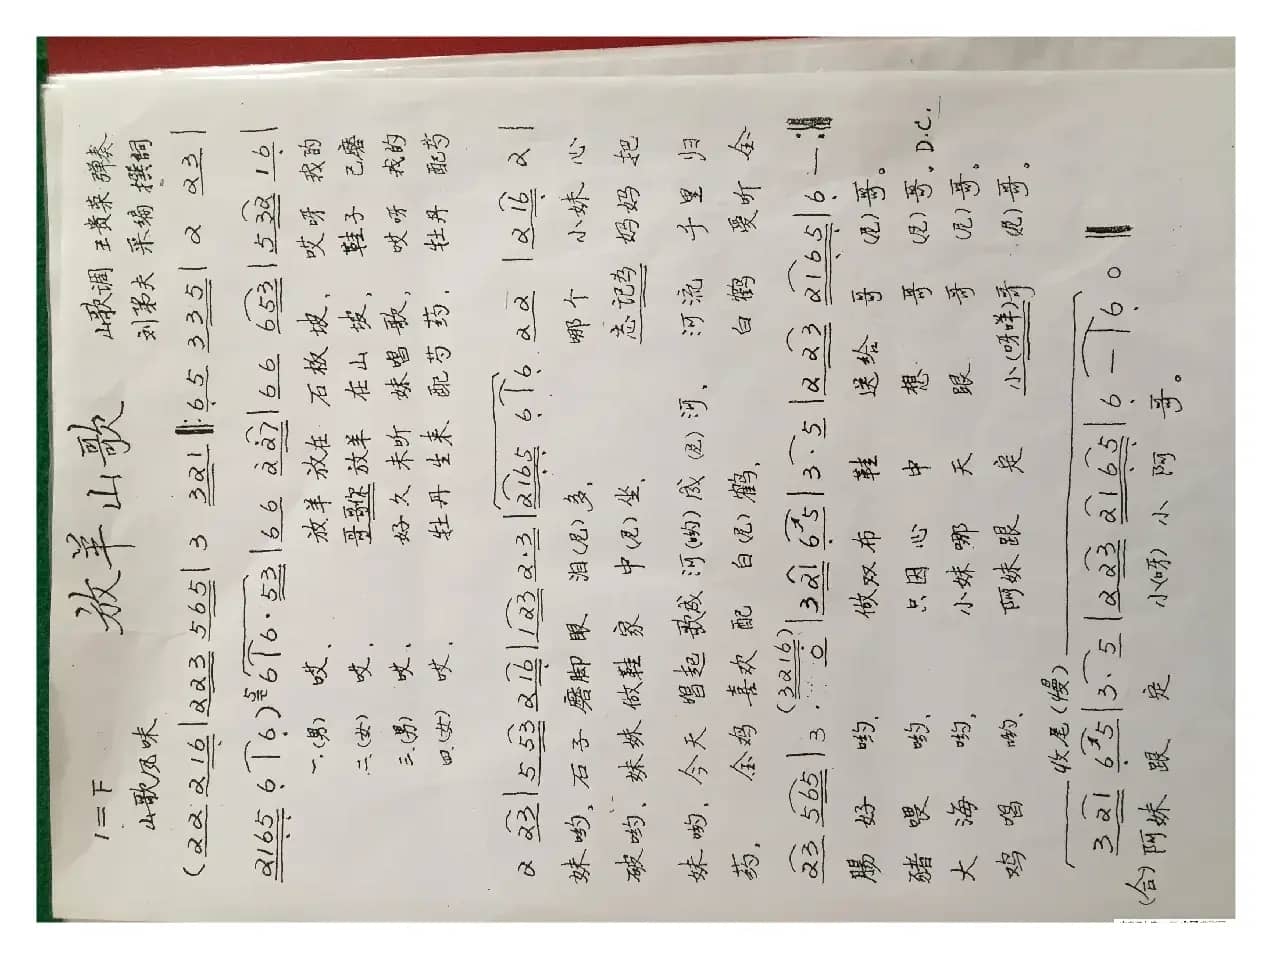 放羊山歌
1=F 山歌调 王贵荣 弹奏
山歌风味 刘弟夫 采编 撰词
(22 2216 | 223 565 | 3 321 ‖: 65 335 | 2 23 |
2165 6 | 6) 6 | 6·53 | 66 227 | 66 653 | 532 16 |
一.(男) 哎、 放羊 放在 石板 坡、 哎呀 我的
二.(女) 哎、 哥哥你 放羊 在山 坡、 鞋子 已磨
三.(男) 哎、 好久 未听 妹唱 歌、 哎呀 我的
四.(女) 哎、 牡丹 生来 配芍 药、 牡丹 配芍
2 23 | 5 553 2216 | 123 2·3 | 2165 6 | 6 22 | 216 2 |
妹哟、石子 磨脚 眼 泪(尼)多、 哪个 小妹 心
破哟、妹妹 做鞋 家 中(尼)坐、 忘记为 妈妈 把
妹哟、今天 唱起 歌成 河(哟)成(尼)河、 河流 千里 归
药、 金鸡 喜欢 配 白(尼)鹤、 白鹤 爱听 金
(3216)
23 565 | 3 · 0 | 321 635 | 3·5 | 223 2165 | 6 — :‖
肠 好 哟、 做双 布 鞋 送给 哥 (尼)哥。
猪 喂 哟、 只因 心 中 想 哥 (尼)哥。D.C.
大 海 哟、 小妹 哪 天 跟 哥 (尼)哥。
鸡 唱 哟、 阿妹 跟 定 小(呀咩)哥 (尼)哥。
收尾(慢)
321 635 | 3·5 | 223 2165 | 6 — | 6 0 ‖
(合)阿妹 跟 定 小(呀) 小 阿 哥。